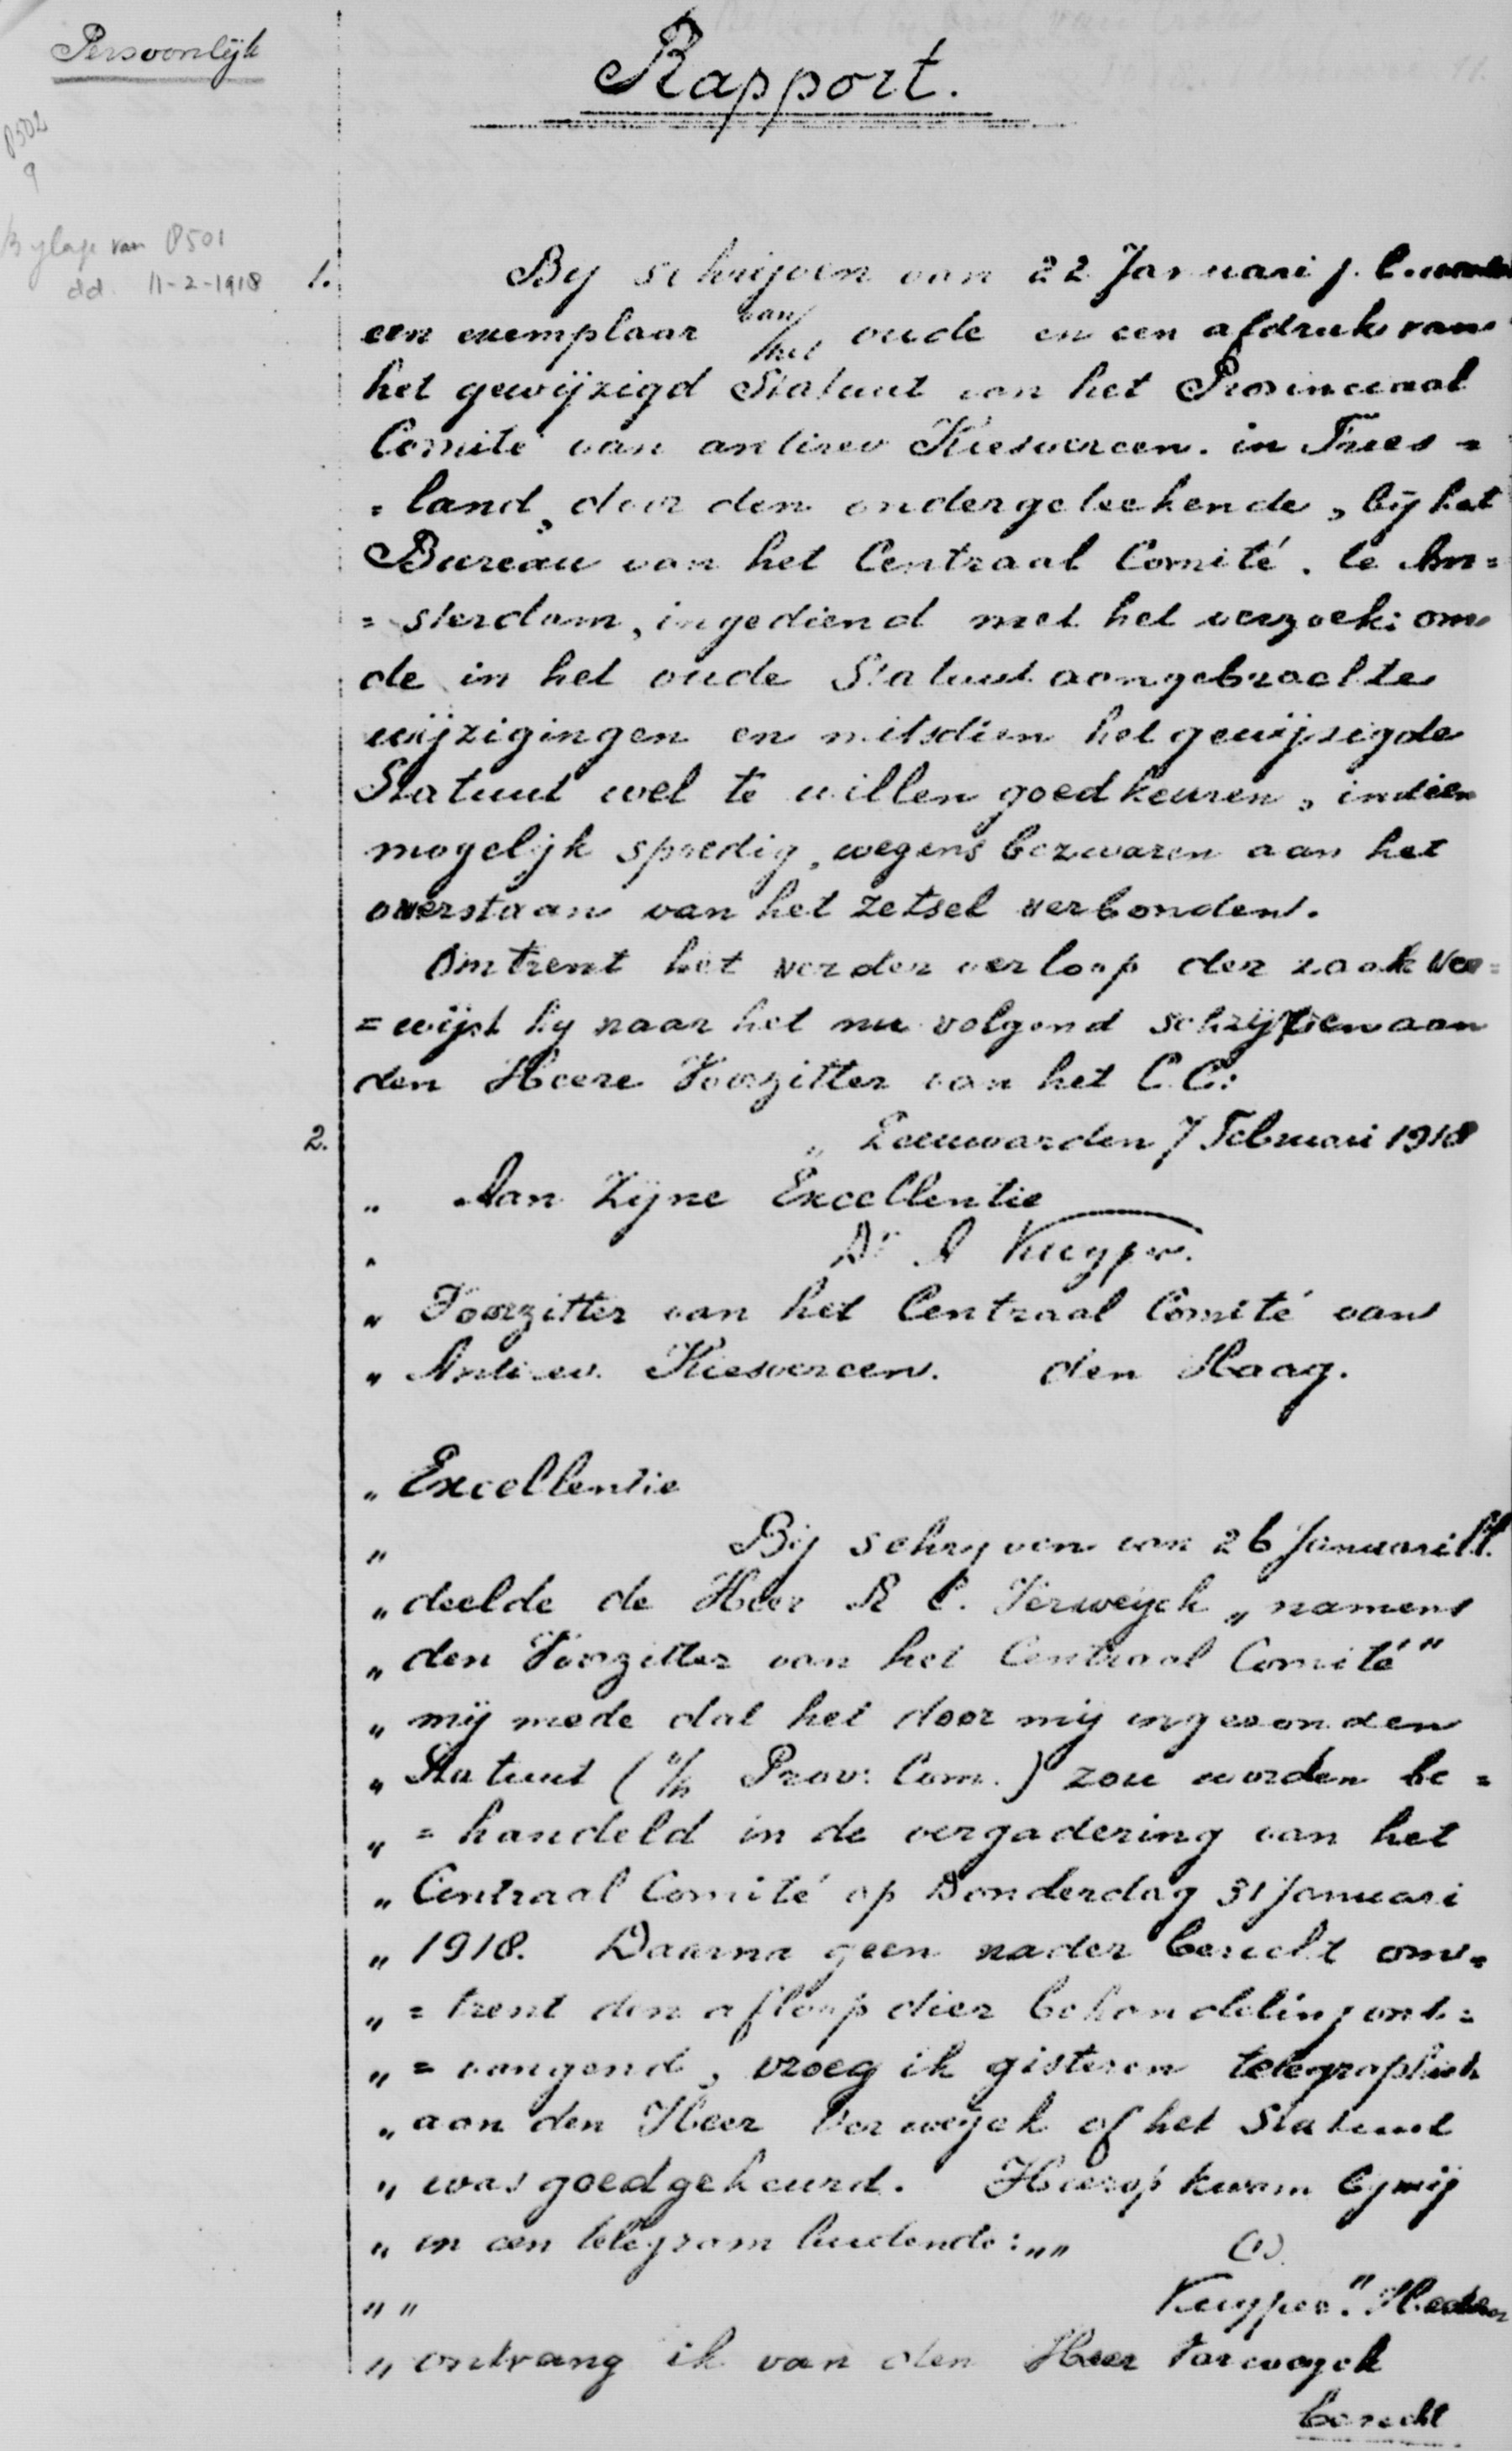 Persoonlijk
Rapport.
P502
9
Bylage van P501
dd. 11-2-1918
1. By schrijven van 22 Januari j.l. werden
een exemplaar van/het oude en een afdruk van
het gewijzigd Statuut van het Provinciaal
Comité van antirev Kiesvereen. in Fries =
= land, door den ondergeteekende, bij het
Bureau van het Centraal Comité. te Am=
= sterdam, ingediend met het verzoek: om
de in het oude Statuut aangebrachte
wijzigingen en mitsdien het gewijzigde
Statuut wel te willen goedkeuren, indien
mogelijk spoedig, wegens bezwaren aan het
overstaan van het zetsel verbonden.
Omtrent het verder verloop der zaak ver=
= wijst hy naar het nu volgend schrijven aan
den Heere Voorzitter van het C.C:
2. „ Leeuwarden 7 Februari 1918
„ Aan Zijne Excellentie
„ Dr A Kuyper.
„ Voorzitter van het Centraal Comité van
„ Antirev. Kiesvereen. den Haag.
„ Excellentie
„ Bij schryven van 26 Januari ll.
„ deelde de Heer R C. Verweyck „ namens
„ den Voorzitter van het Centraal Comité"
„ mij mede dat het door mij ingezonden
„ Statuut (v/h Prov: Com.) zou worden be =
„ = handeld in de vergadering van het
„ Centraal Comité op Donderdag 31 Januari
„ 1918. Daarna geen nader bericht om=
„ = trent den afloop dier behandeling ont=
„ = vangend, vroeg ik gisteren telegraphisch
„ aan den Heer Verweyck of het Statuut
„ was goedgekeurd. Hierop kwam by mij
„ in een telegram luidende: „„ (1)
„ „ Kuyper." Heden
„ ontvang ik van den Heer Verweyck
bericht